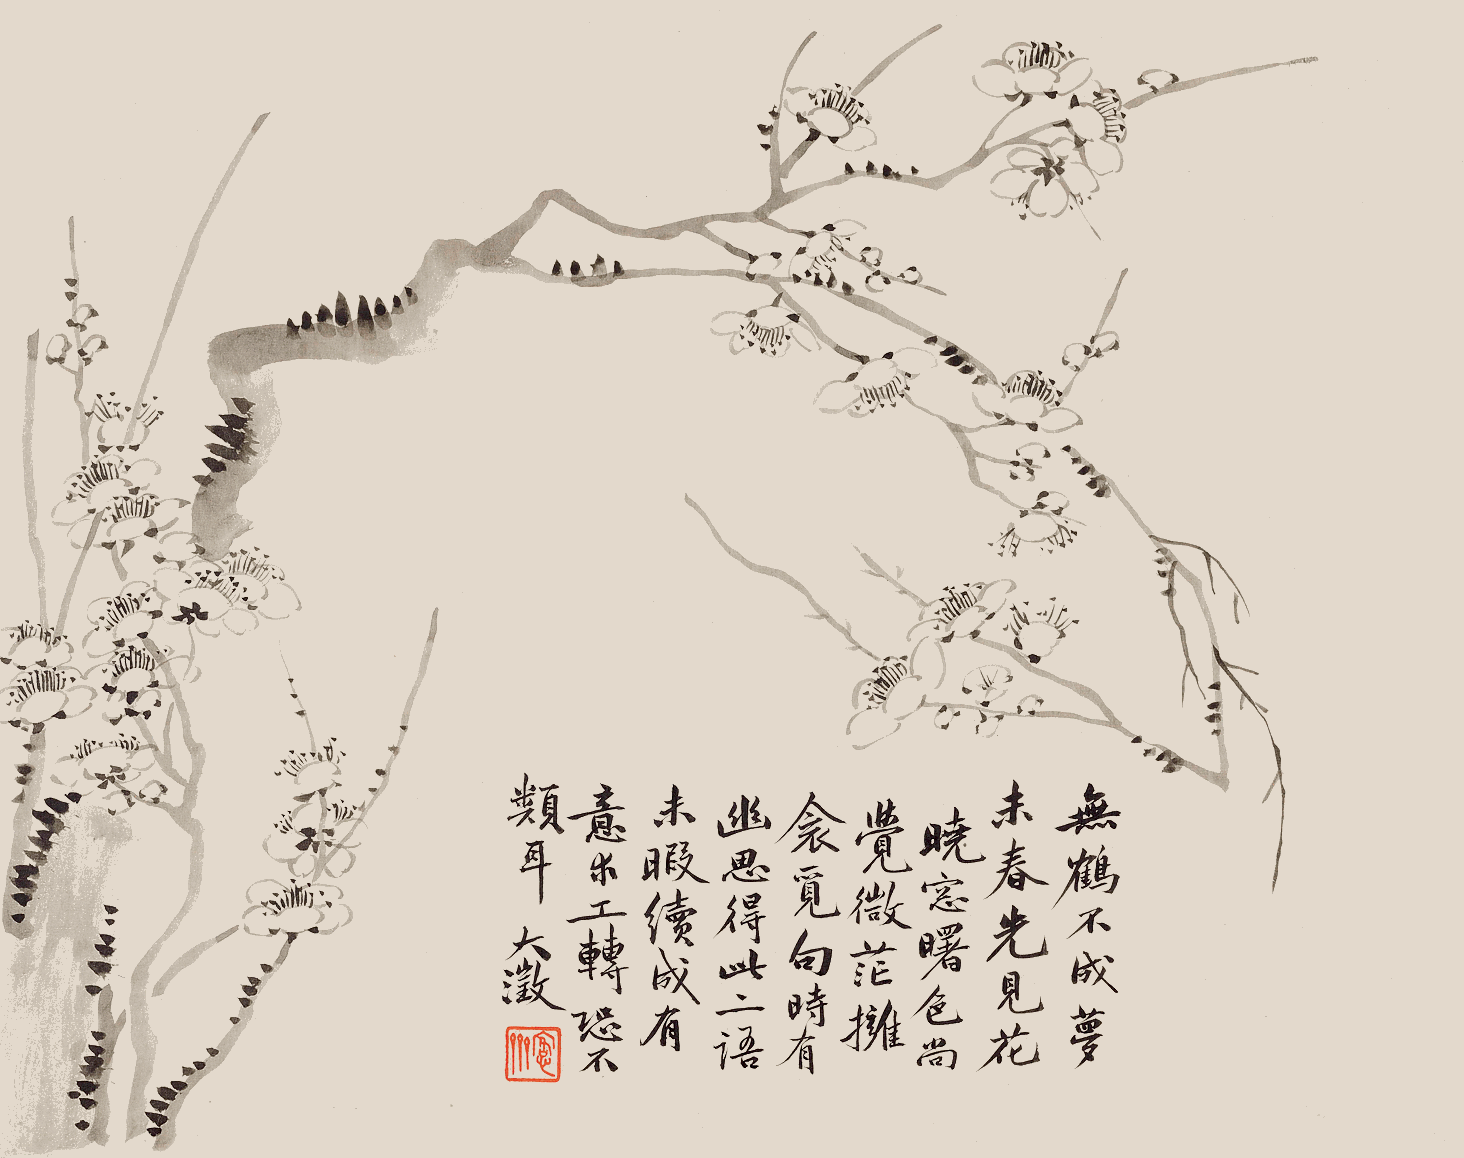 無鶴不成夢
未春先見花
曉窓曙色尚
覺微茫擁
衾覓句時有
幽思得此二語
未暇續成有
意求工轉恐不
類耳
大澂